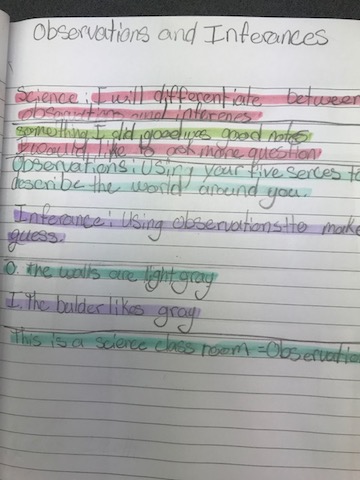 Observations and Inferances
Science: I will differentiate between
observation and inferenes
something I did good was good notes
I would like to ask more question
Observations: Using your five serces to
describe the world around you.
Inferance: Using observations to make
guess.
O. the walls are light gray
I. the bulder likes gray
This is a science class room = Observatio